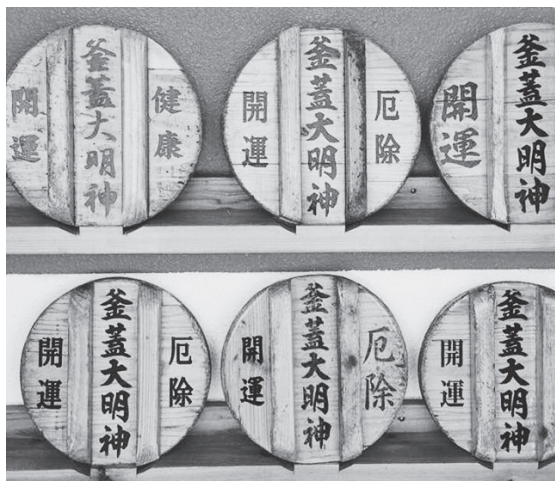 健康
釜蓋大明神
開運
厄除
釜蓋大明神
開運
釜蓋大明神
開運
厄除
釜蓋大明神
開運
厄除
釜蓋大明神
開運
釜蓋大明神
開運